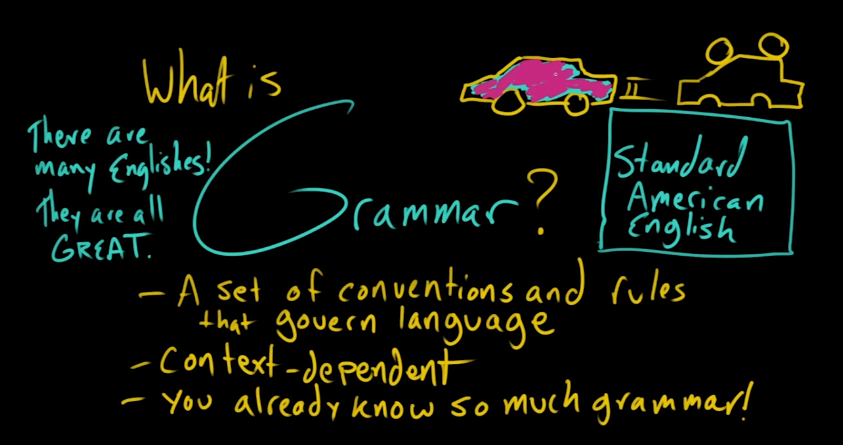 What is
Grammar?
There are
many Englishes!
They are all
GREAT.
Standard
American
English
- A set of conventions and rules
that govern language
- Context-dependent
- You already know so much grammar!